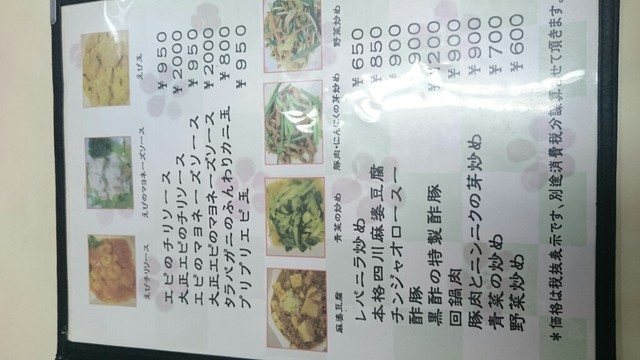 えびチリソース えびのマヨネーズソース えび玉
エビのチリソース ¥950
大正エビのチリソース ¥2000
エビのマヨネーズソース ¥950
大正エビのマヨネーズソース ¥2000
タラバガニのふんわりカニ玉 ¥800
プリプリエビ玉 ¥950
麻婆豆腐 青菜の炒め 豚肉・にんにくの芽炒め 野菜炒め
レバニラ炒め ¥650
本格四川麻婆豆腐 ¥850
チンジャオロースー ¥900
酢豚 ¥900
黒酢の特製酢豚 ¥1200
回鍋肉 ¥900
豚肉とニンニクの芽炒め ¥900
青菜の炒め ¥700
野菜炒め ¥600
*価格は税抜表示です、別途消費税分 させて頂きます。